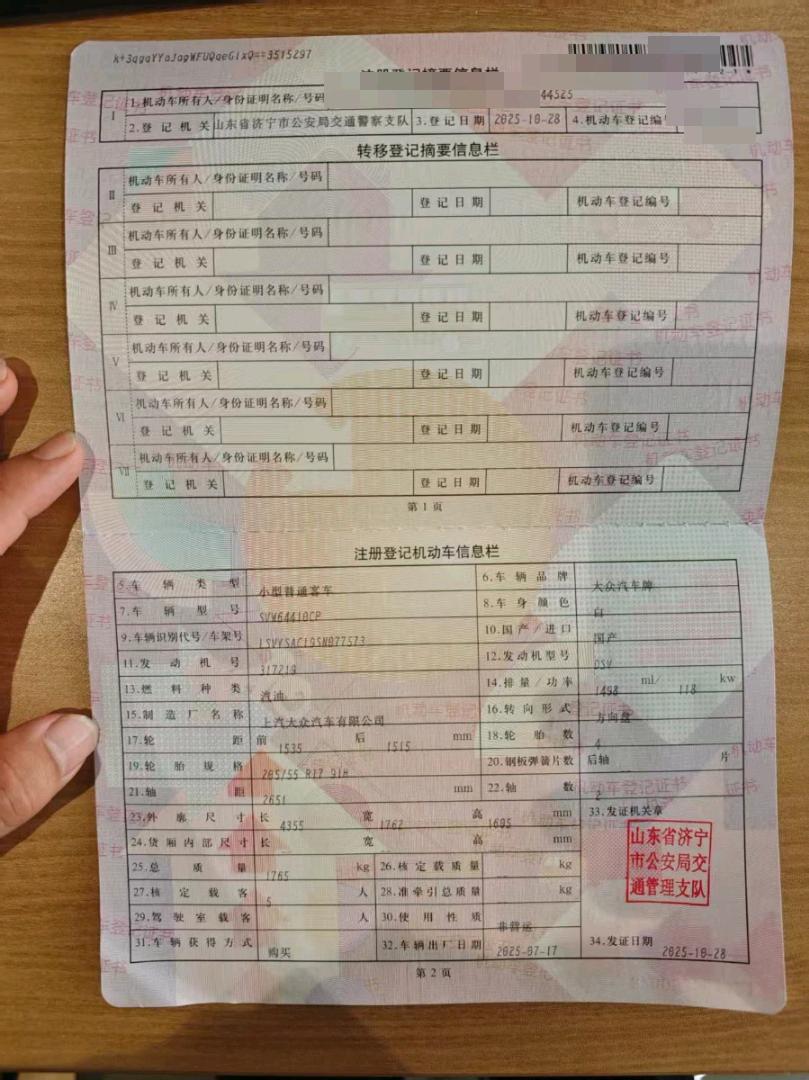 注册登记摘要信息栏
I
1.机动车所有人/身份证明名称/号码 44525
2.登记机关 山东省济宁市公安局交通警察支队 3.登记日期 2025-10-28 4.机动车登记编号
转移登记摘要信息栏
II 机动车所有人/身份证明名称/号码
登记机关 登记日期 机动车登记编号
III 机动车所有人/身份证明名称/号码
登记机关 登记日期 机动车登记编号
IV 机动车所有人/身份证明名称/号码
登记机关 登记日期 机动车登记编号
V 机动车所有人/身份证明名称/号码
登记机关 登记日期 机动车登记编号
VI 机动车所有人/身份证明名称/号码
登记机关 登记日期 机动车登记编号
VII 机动车所有人/身份证明名称/号码
登记机关 登记日期 机动车登记编号
第1页
注册登记机动车信息栏
5.车辆类型 小型普通客车 6.车辆品牌 大众汽车牌
7.车辆型号 SVW64410CP 8.车身颜色 白
9.车辆识别代号/车架号 10.国产/进口 国产
11.发动机号 317219 12.发动机型号 DSV
13.燃料种类 汽油 14.排量/功率 1498 ml/ 118 kw
15.制造厂名称 上汽大众汽车有限公司 16.转向形式 方向盘
17.轮距 前 1535 后 1515 mm 18.轮胎数 4
19.轮胎规格 205/55 R17 91H 20.钢板弹簧片数 后轴 片
21.轴距 2651 mm 22.轴数 2
23.外廓尺寸 长 4355 宽 1762 高 1605 mm 33.发证机关章
24.货厢内部尺寸 长 宽 高 mm
山东省济宁
市公安局交
通管理支队
25.总质量 1765 kg 26.核定载质量 kg
27.核定载客 5 人 28.准牵引总质量 kg
29.驾驶室载客 人 30.使用性质 非营运
31.车辆获得方式 购买 32.车辆出厂日期 2025-07-17 34.发证日期 2025-10-28
第2页